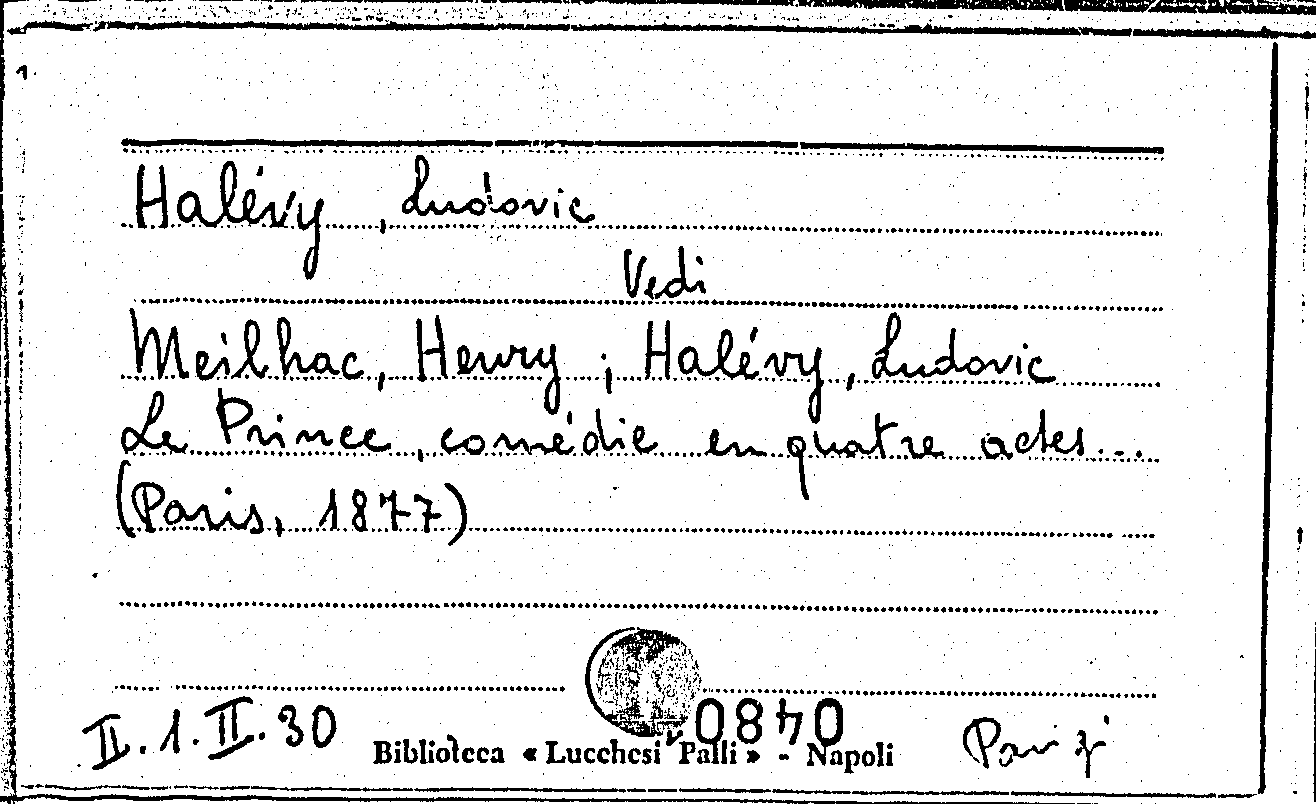 Halévy, Ludovic
Vedi
Meilhac, Henry ; Halévy, Ludovic
Le Prince, comédie en quatre actes...
(Paris, 1877)
II. 1. II. 30
Biblioteca « Lucchesi Palli » - Napoli